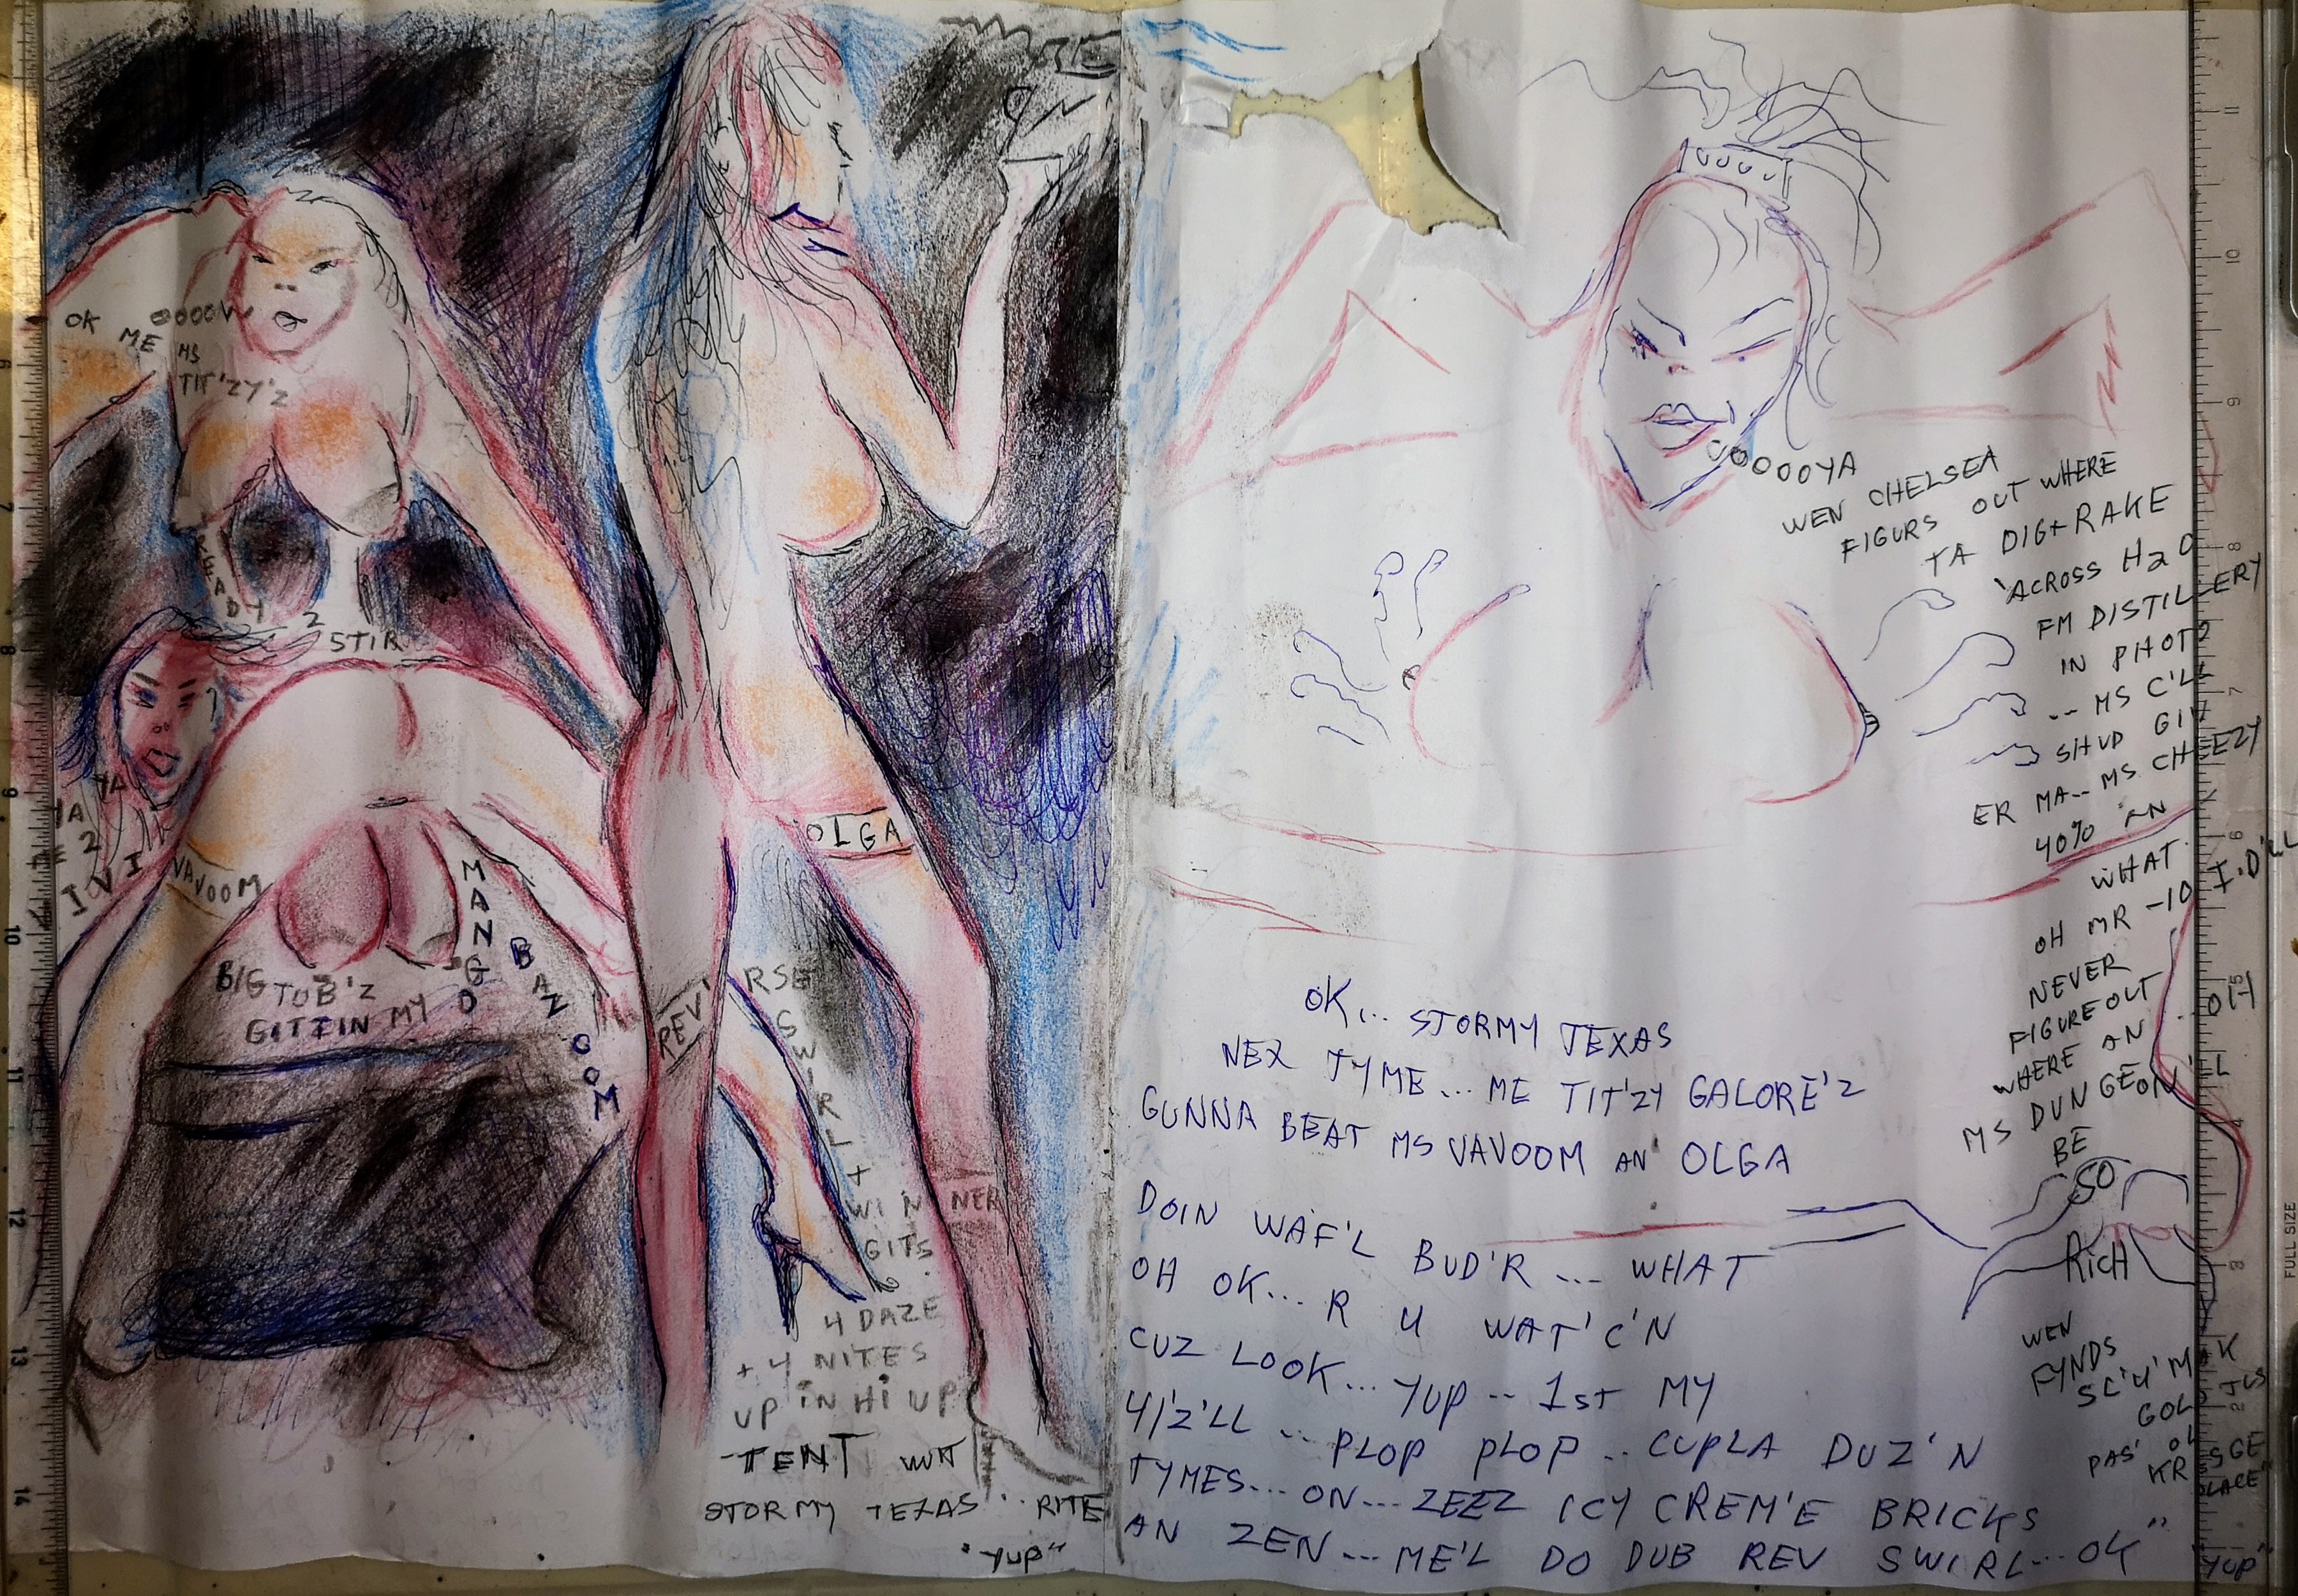 OK
ME
OOOOW
MS
TIT'ZY'Z
READY 2
STIR
YA YA
2
IVI
VAVOOM
BIG TUB'Z
GITTIN MY
MANGO
BAZOOM
OLGA
REV'RSE
SWIRL
+
WINNER
GITS
4 DAZE
+ 4 NITES
UP IN HI UP
TENT WIT
STORMY TEXAS... RITE
"YUP"
OOOOOYA
WEN CHELSEA
FIGURS OUT WHERE
TA DIG + RAKE
'ACROSS H2O
FM DISTILLERY
IN PHOT2
-- MS C'LL
SHUD GIT
ER MA-- MS CHEEZY
40% AN
WHAT.
I.D'LL
OH MR -10
NEVER
FIGURE OUT
OH
WHERE AN
MS DUNGEON'LL
BE
SO
RICH
WEN
FYNDS
SC'U'M
GOL
PAS' OL
OK... STORMY TEXAS
NEX TYME... ME TIT'ZY GALORE'Z
GUNNA BEAT MS VAVOOM AN' OLGA
DOIN WAF'L BUD'R ... WHAT
OH OK... R U WAT'C'N
CUZ LOOK... YUP -- 1ST MY
4/Z'LL ... PLOP PLOP .. CUPLA DUZ'N
TYMES... ON... ZEEZ ICY CREM'E BRICKS
AN ZEN... ME'L DO DUB REV SWIRL... OK"
"YUP"